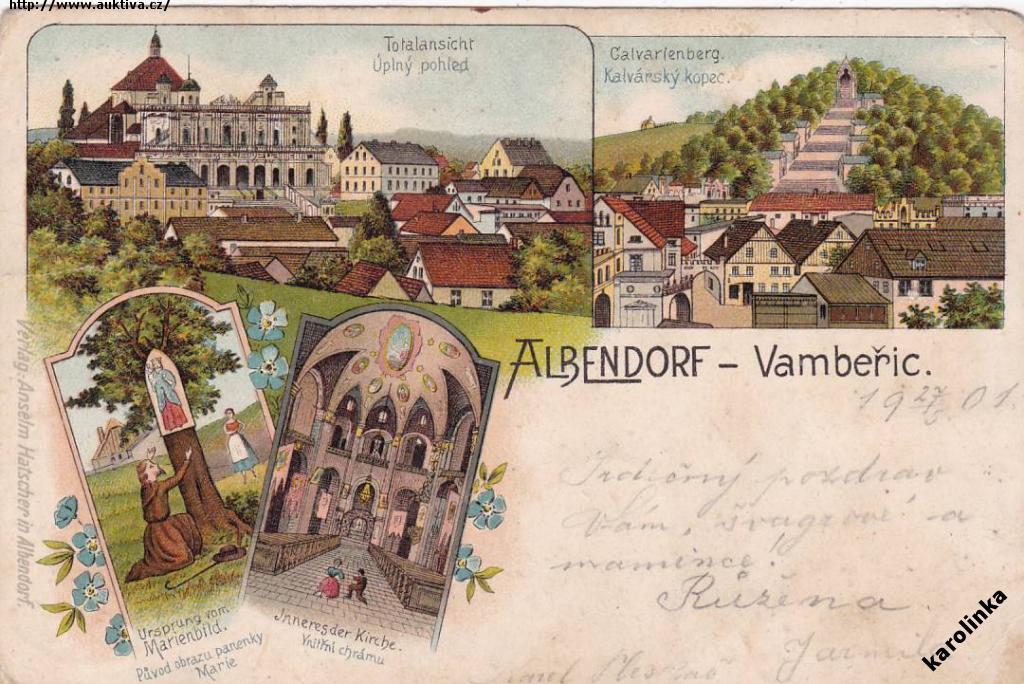 http://www.auktiva.cz/
Totalansicht
Úplný pohled
Calvarienberg.
Kalvárský kopec.
ALBENDORF – Vambeřic.
19 27/5 01.
Srdečný pozdrav
Vám, švagrové a
mamince.
Růžena
Jarmil
Verlag: Anselm Hatscher in Albendorf.
Ursprung vom
Marienbild.
Původ obrazu panenky
Marie
Inneres der Kirche.
Vnitřní chrámu
karolinka